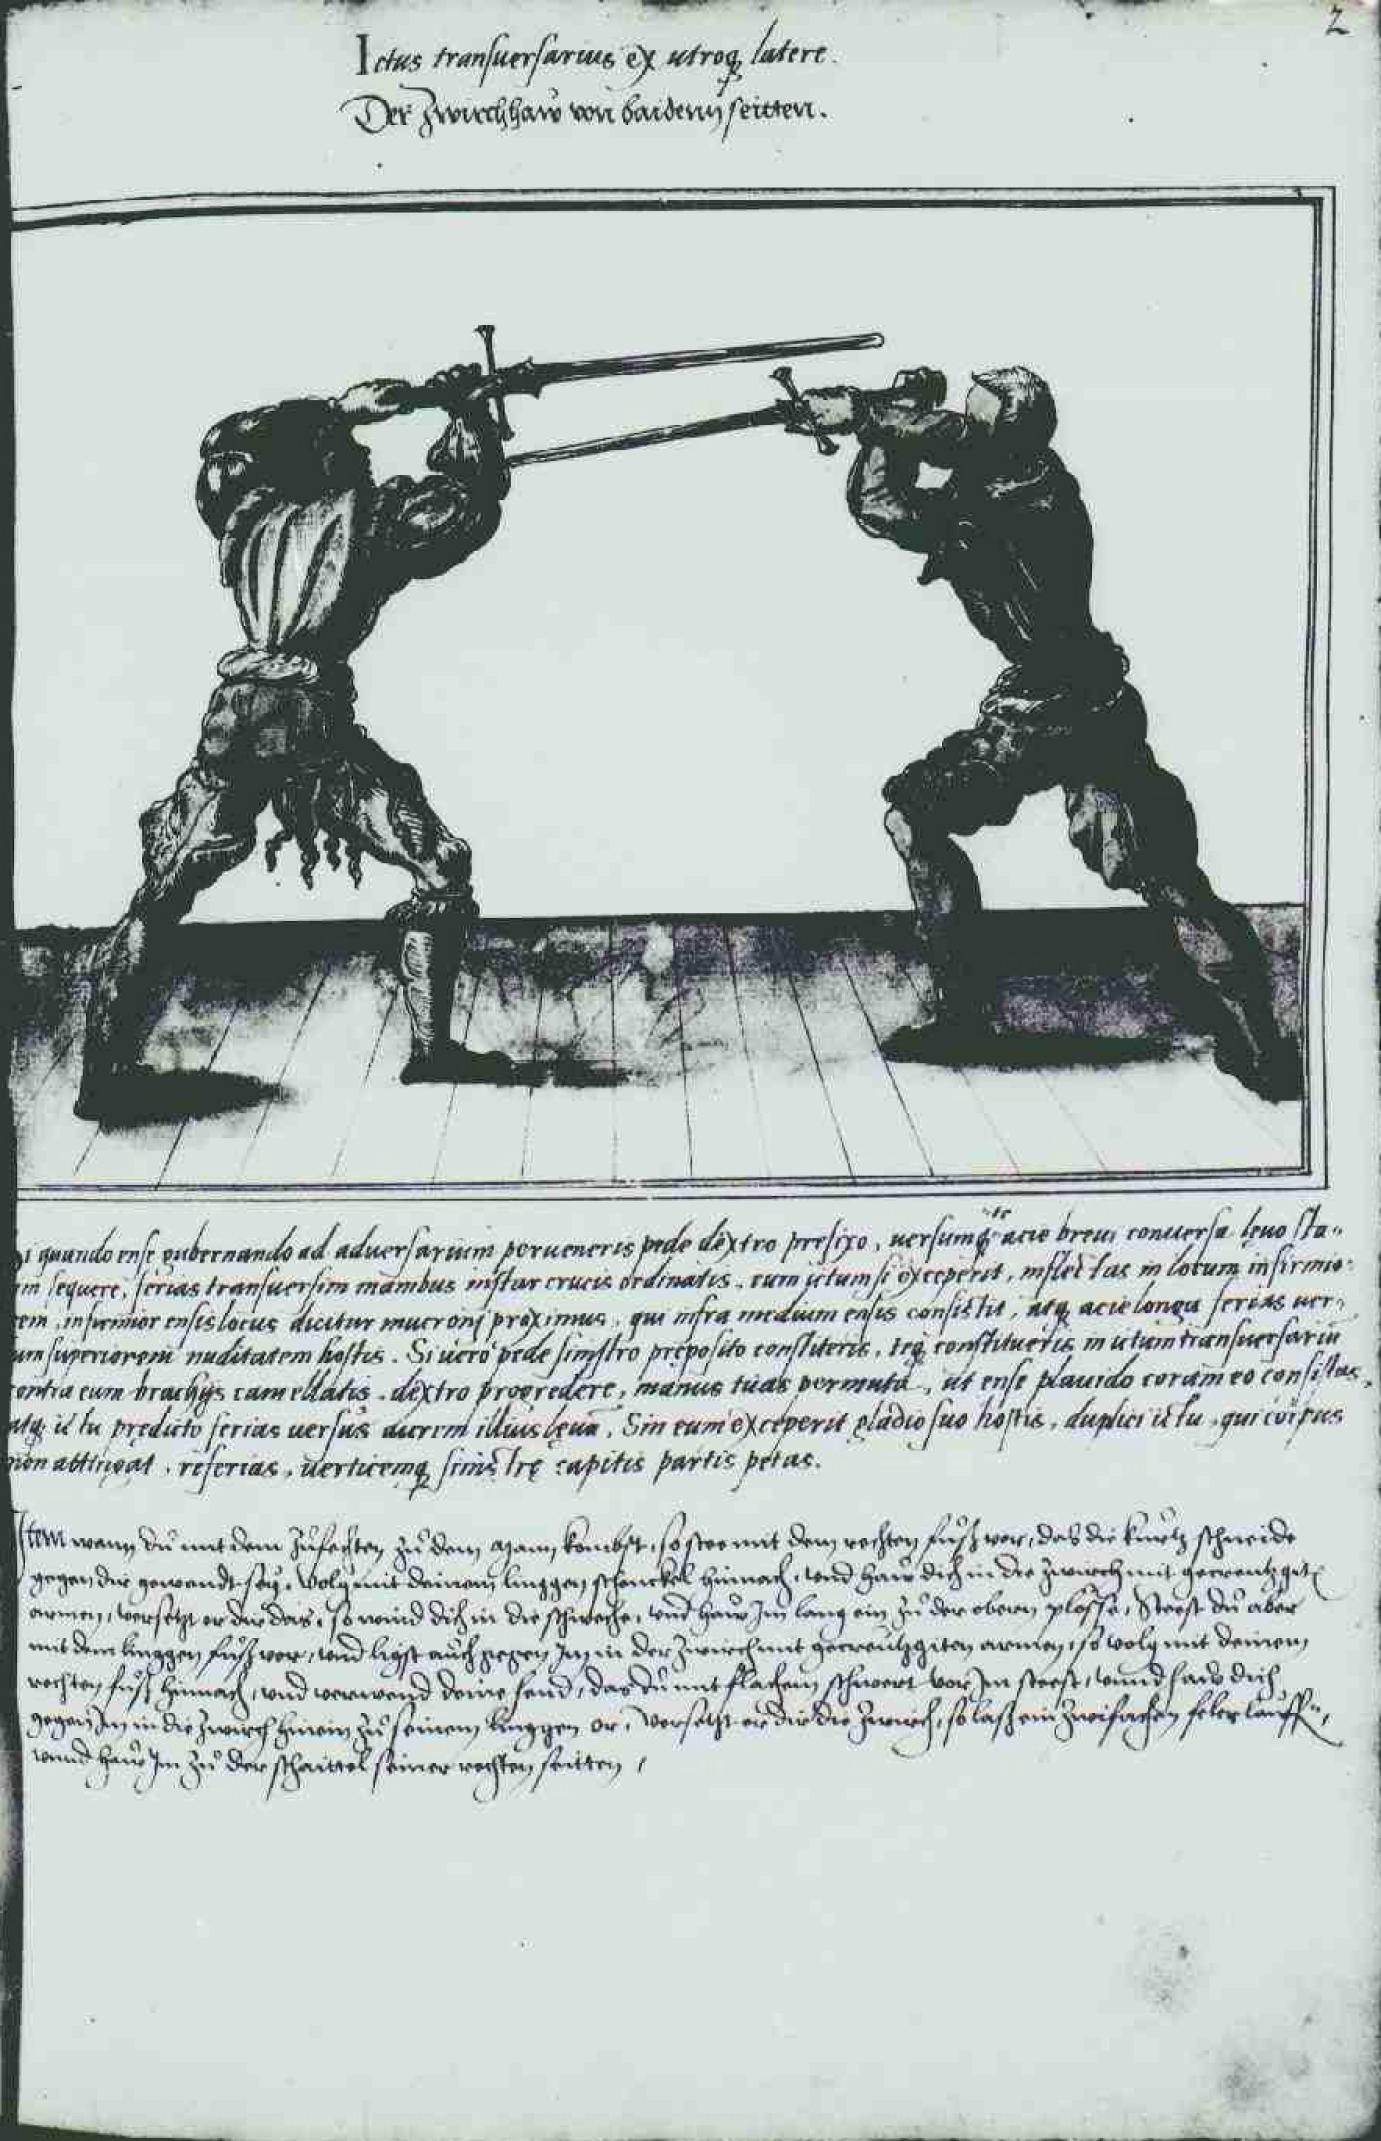 2
Ictus transuersarius ex utroq latere.
Der Zwirchhaw von baidenn seitten.
quando ense gubernando ad aduersarium perueneris pede dextro prefixo, uersumq te acie breui conuersa leuo sta-
im sequere, ferias transuersim manibus instar crucis ordinatis. cum ictum si exceperit, inflectas in locum infirmio-
rem, infirmior ensis locus dicitur mucroni proximus, qui infra medium ensis consistit, atq acie longa ferias uer-
um superiorem nuditatem hostis. Si uero pede sinistro preposito constiteris, teq constitueris in ictum transuersariu
contra eum brachijs cancellatis. dextro progredere, manus tuas permuta, ut ense plauido coram eo consistas,
atq ictu predicto ferias uersus aurem illius leua. Sin eum exceperit gladio suo hostis, duplici ictu, qui corpus
non attingat, referias, uerticemq sinistre capitis partis petas.
Item wann du mit dem zufechten zu dem mann kombst, so stee mit dem rechten fuss vor, das die kurtz schneide
gegen dir gewendt sey, volg mit deinem linggen schenckel hinnach, und haw dich in die zwirch mit gecreutzgten
armen, versetzt er dir das, so wind dich in die schweche, und haw Im lang ein zu der obern plosse, Steest du aber
mit dem linggen fuss vor, und ligst auch gegen Im in der zwirch mit gecreutzgiten armen, so volg mit deinem
rechten fuss hinnach, und verwend deine hend, das du mit flachem schwert vor Im steest, unnd haw dich
gegen Im in die zwirch hinein zu seinem linggen or, versetzt er dir die zwirch, so lass ein zwifachen feler lauffen,
unnd haw Im zu der schaittel seiner rechten seitten,